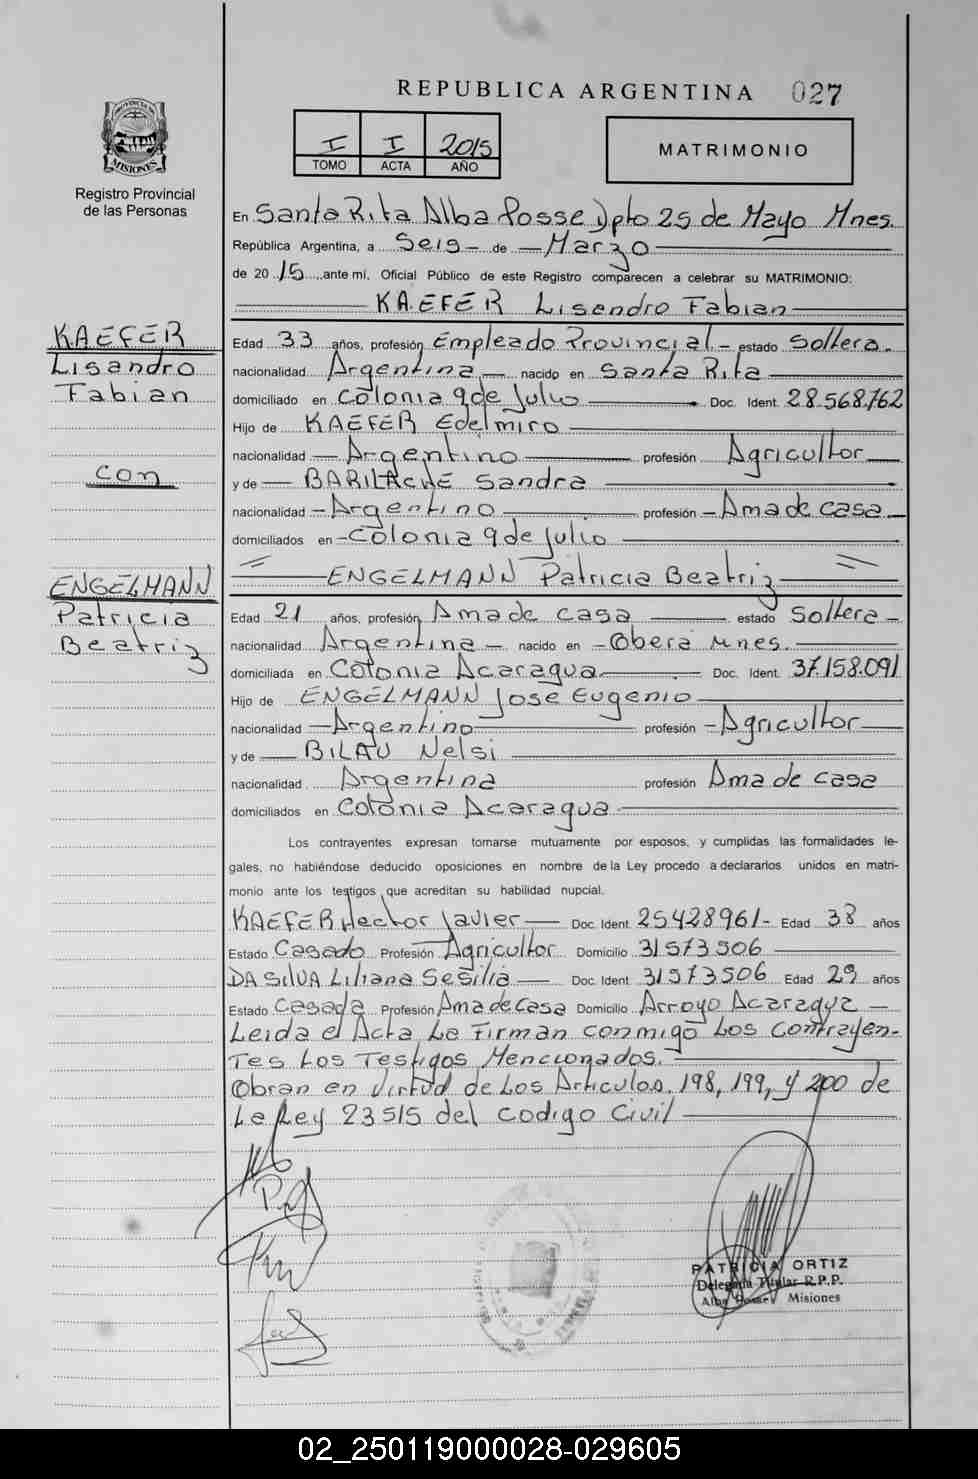 REPUBLICA ARGENTINA 027
PROVINCIA DE MISIONES
Registro Provincial
de las Personas
I I 2015
TOMO ACTA AÑO
MATRIMONIO
En Santa Rita Alba Posse Dpto 25 de Mayo Mnes.
República Argentina, a Seis de Marzo
de 2015, ante mí, Oficial Público de este Registro comparecen a celebrar su MATRIMONIO:
KAEFER Lisendro Fabian
KAEFER
Lisandro
Fabian
con
ENGELMANN
Patricia
Beatriz
Edad 33 años, profesión Empleado Provincial - estado Soltero.
nacionalidad Argentina nacido en Santa Rita
domiciliado en Colonia 9 de Julio Doc. Ident. 28.568.762
Hijo de KAEFER Edelmiro
nacionalidad Argentino profesión Agricultor
y de BARILACHE Sandra
nacionalidad Argentino profesión Ama de casa
domiciliados en Colonia 9 de Julio
ENGELMANN Patricia Beatriz
Edad 21 años, profesión Ama de casa estado Soltera
nacionalidad Argentina nacido en Obera Mnes.
domiciliada en Colonia Acaragua Doc. Ident. 37.158.091
Hijo de ENGELMANN Jose Eugenio
nacionalidad Argentino profesión Agricultor
y de BILAU Nelsi
nacionalidad Argentina profesión Ama de casa
domiciliados en Colonia Acaragua
Los contrayentes expresan tomarse mutuamente por esposos, y cumplidas las formalidades le-
gales, no habiéndose deducido oposiciones en nombre de la Ley procedo a declararlos unidos en matri-
monio ante los testigos que acreditan su habilidad nupcial.
KAEFER Hector Javier Doc. Ident 25428961- Edad 38 años
Estado Casado Profesión Agricultor Domicilio 31573506
DA SILVA Liliana Sesilia Doc. Ident 31573506 Edad 29 años
Estado Casada Profesión Ama de Casa Domicilio Arroyo Acaragua
Leida el Acta La Firman conmigo Los Contrayen-
tes Los Testigos Mencionados.
Obran en Virtud de Los Articulos, 198, 199, y 200 de
La Ley 23515 del codigo Civil
PATRICIA ORTIZ
Delegada Titular R.P.P.
Alba Posse Misiones
02_250119000028-029605